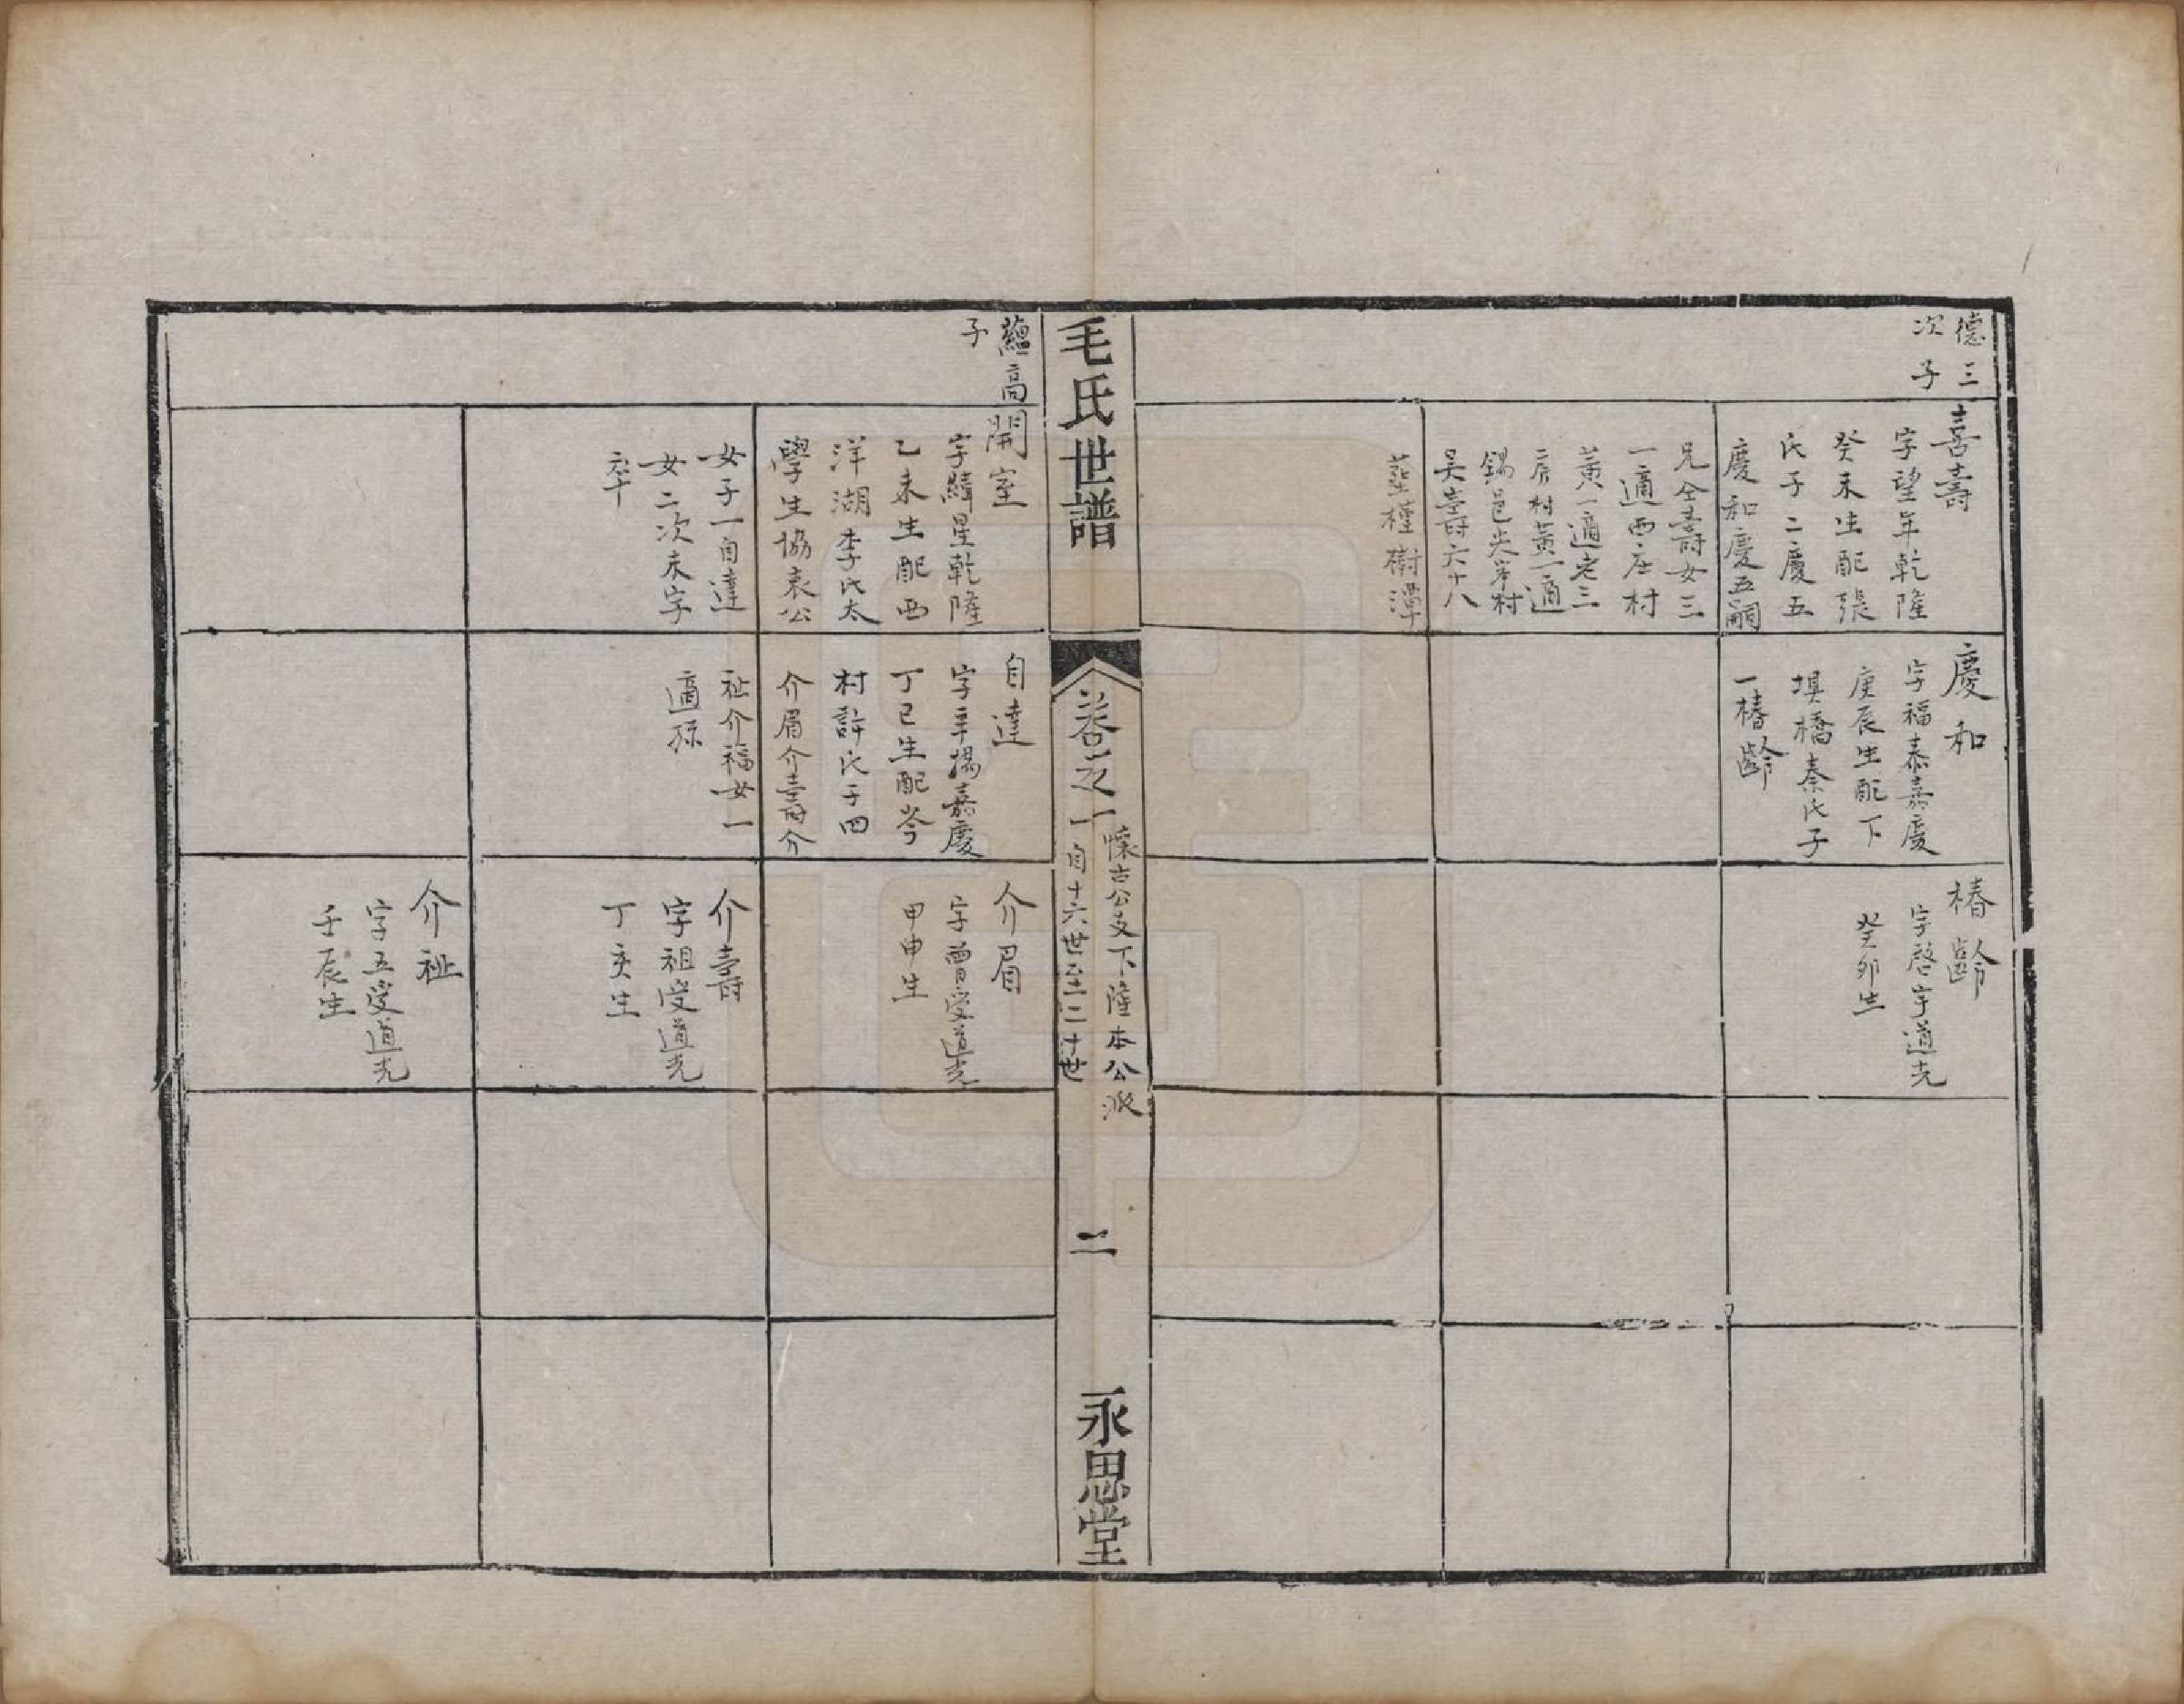 德三
次子
喜壽
字望年乾隆
癸未生配張
氏子二慶五
慶和慶五嗣
兄仝壽女三
一適西庄村
黃一適宅三
房村黃一適
錫邑尖岸村
吴壽六十八
塟槿樹潭
慶和
字福泰嘉慶
庚辰生配下
塤橋秦氏子
一椿齡
椿齡
字啓宇道光
癸卯生
毛氏世譜
卷之一
懷古公支下隆本公派
自十六世至二十世
二
永思堂
蘊高
子
開室
字緯星乾隆
乙未生配西
洋湖李氏太
學生協衷公
女子一自達
女二次未字
卒
自達
字辛揚嘉慶
丁巳生配岑
村許氏子四
介眉介壽介
祉介福女一
適孫
介眉
字曾受道光
甲申生
介壽
字祖受道光
丁亥生
介祉
字五受道光
壬辰生